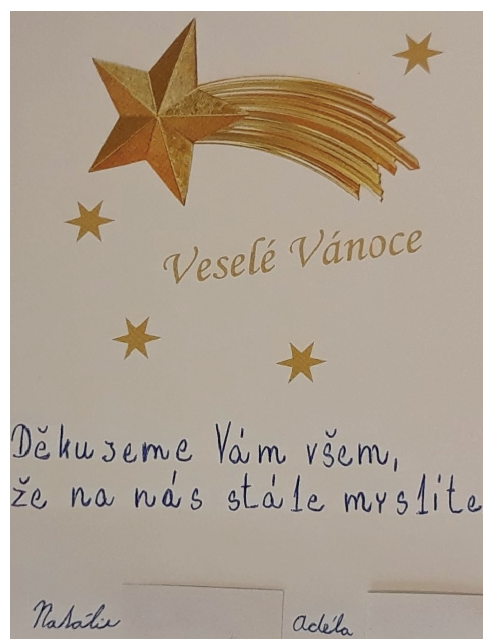 Veselé Vánoce
Děkujeme Vám všem,
že na nás stále myslíte
Natálie Adéla